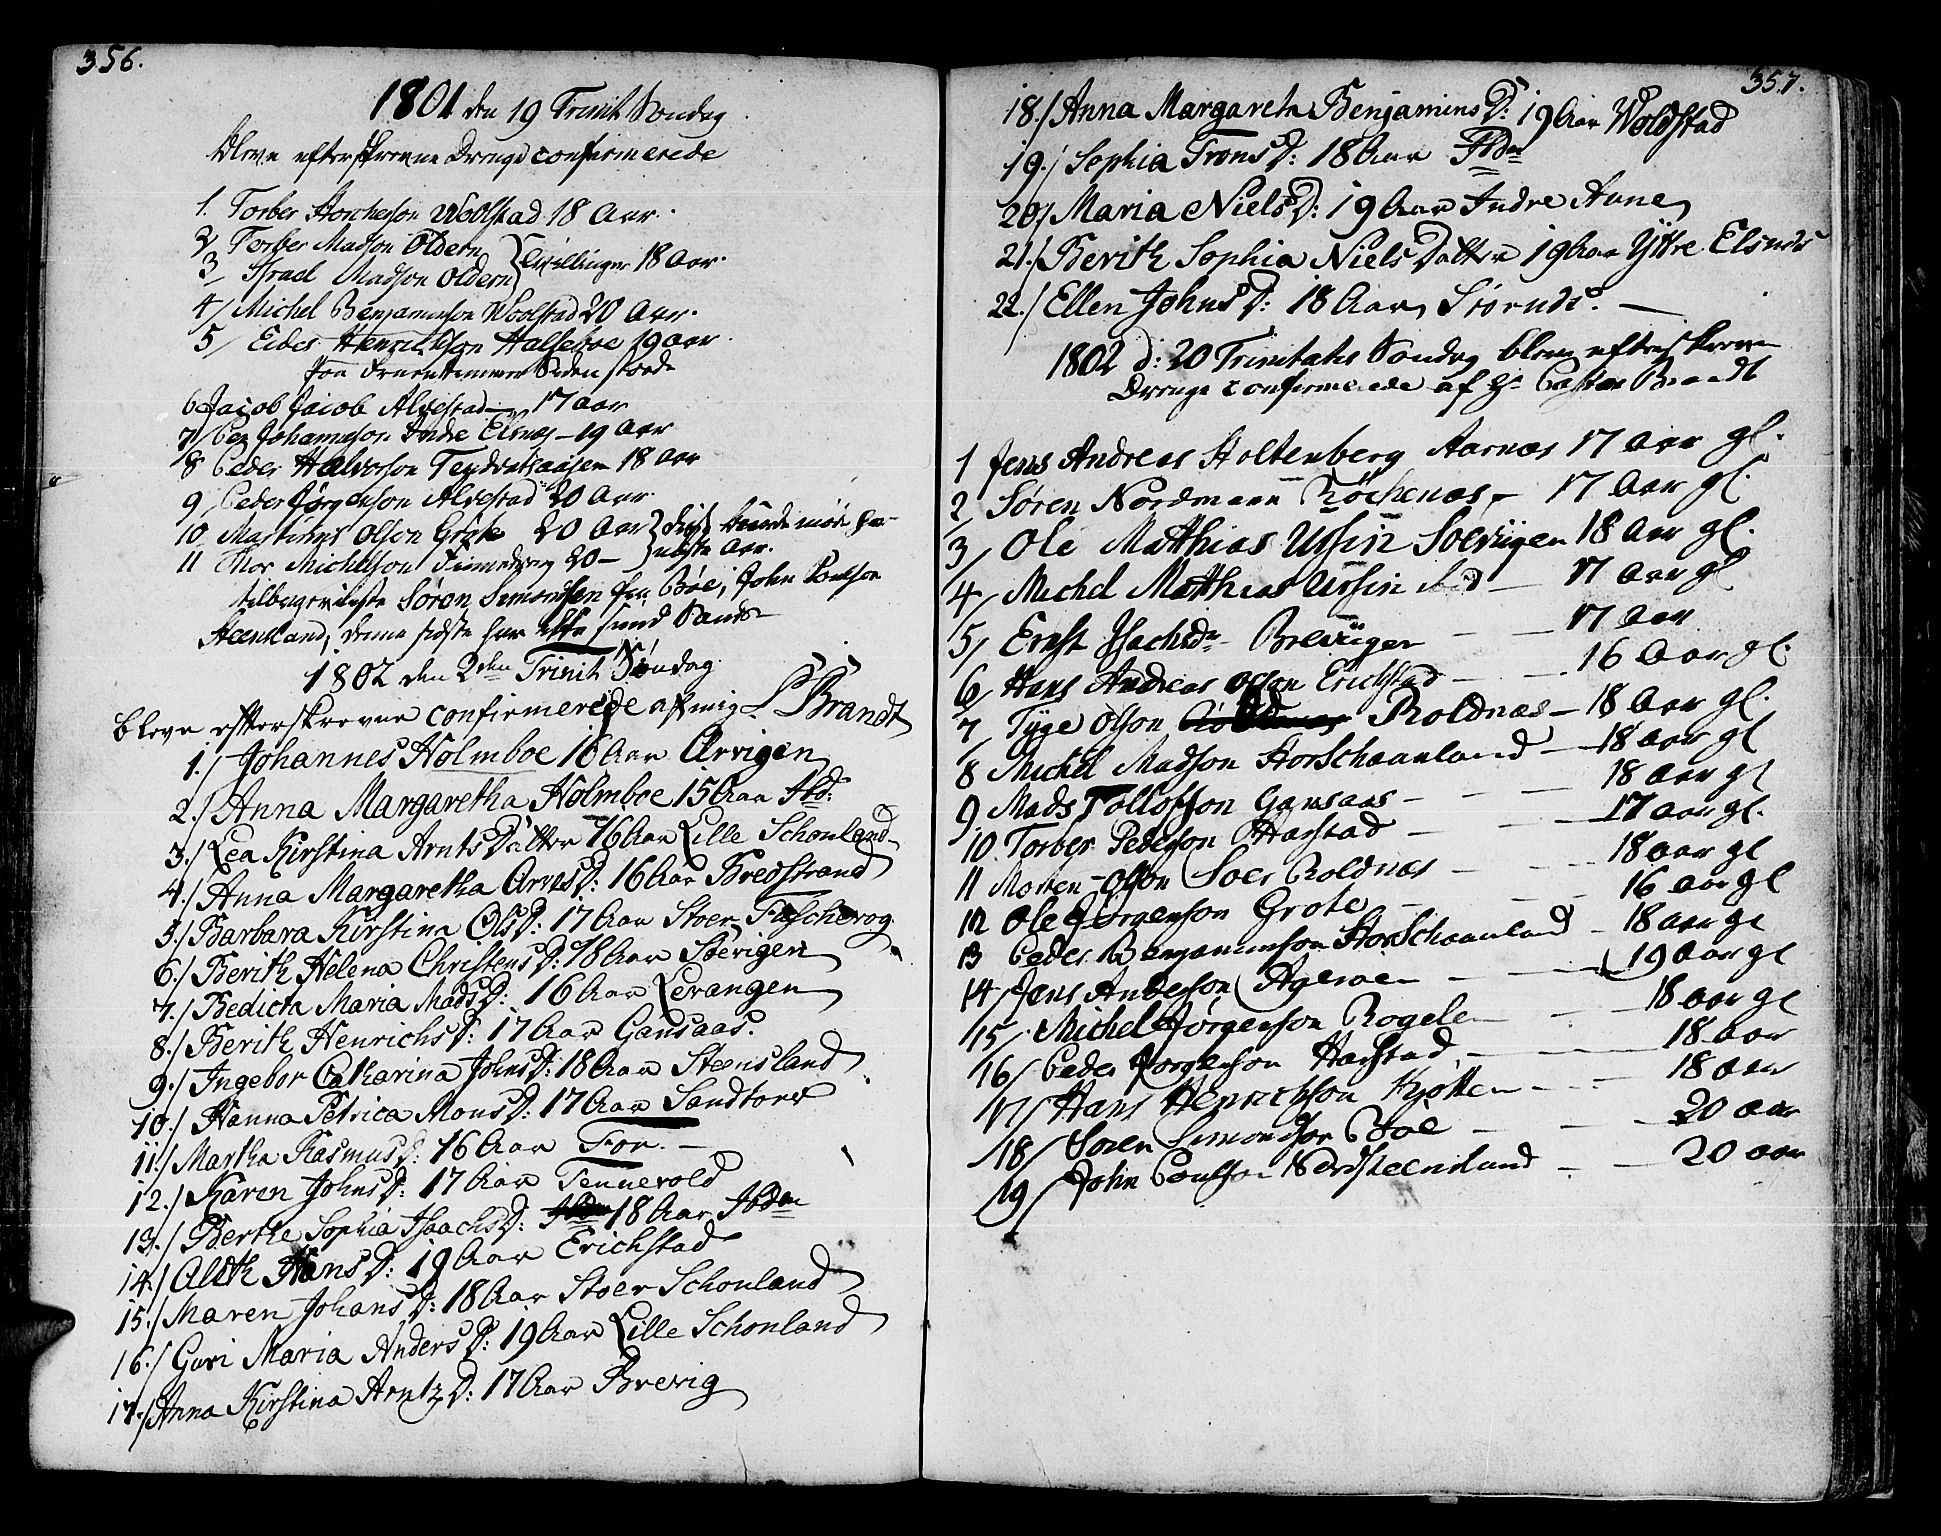 356.
1801 den 19 Trinit Søndag
bleve efterskrevne Drenge confirmerede
1. Torber Woolstad 18 Aar.
2 Torber Madson Oldern
3 Israel Madson Oldern } tvillinger 18 Aar.
4/ Michel Benjaminson Woolstad 20 Aar.
5/ Eider Henrichson Halseboe 19 aar.
Siden
6 Jacob Jacob Alvestad 17 aar
7/ Per Johanneson Indre Elsnes - 19 Aar
8 Peder Halvorson 18 aar
9/ Peder Jørgenson Alvestad 20 Aar.
10. Martinus Olson Grøte 20 Aar
11 Thor Michelson 20 - næste Aar.
tilbageviiste Søren Simonsen fra Bøe, John Poulson
Steensland, denne sidste har
1802 den 2den Trinit Søndag
bleve efterskrevne confirmerede af mig Brandt
1./ Johannes Holmboe 16 Aar Orvigen
2./ Anna Margaretha Holmboe 15 Aar Ibd:
3./ Lea Kirstina Arnts Datter 16 Aar Lille Schonland
4./ Anna Margaretha Arns D: 16 Aar Bredstrand
5./ Barbara Kirstina Ols D: 17 Aar Stoer Fischevog
6./ Berith Helena Christens D: 18 Aar Soevigen
7./ Bedicta Maria Mads D: 16 Aar Levangen
8./ Berith Henrichs D: 17 Aar Gansaas.
9./ Ingebor Catharina Johns D: 18 Aar Steensland
10./ Hanna Petrica Mons D: 17 Aar Sandtorv
11./ Martha Rasmus D: 16 Aar For. -
12./ Karen Johns D: 17 Aar Tennevold
13./ Berthe Sophia Isaachs D: 18 Aar Ibdm
14./ Aleth Hans D: 19 Aar Erichstad
15./ Maren Johans D: 18 Aar Stoer Schonland
16./ Guri Maria Anders D: 19 Aar Lille Schonland
17./ Anna Kirstina Arntz D: 17 Aar Brevig
357.
18./ Anna Margareta Benjamins D: 19 Aar Woldstad
19./ Sophia Trons D: 18 Aar Ibdm
20/ Maria Niels D: 19 Aar Indre Aune
21./ Berith Sophia Niels Datter 19 Aar Yttre Elsnds
22./ Ellen Johns D: 18 Aar Stornds. -
1802 d: 20 Trinitatis Søndag bleve efterskrevne
Drenge confirmerede af Hr Pastor Brandt
1 Jens Andreas Holtenberg Aarnæs 17 Aar gl.
2 Søren Nordmann Røchenæs - 17 Aar gl.
3/ Ole Matthias Ursin Soevigen 18 Aar gl.
4/ Michel Matthias Ursin ibid - 17 Aar gl
5/ Ernst Brevigen - 17 aar
6/ Hans Andreas Olson Erichstad - 16 Aar gl.
7/ Tyge Olson Roldnæs - 18 Aar gl.
8 Michel Madson StorSchaanland - 18 aar gl
9 Mads Tollofson Gansaas - 18 aar gl
10. Torber Pederson Harstad - 17 aar gl.
11 Morten Olson Soer Roldnæs - 18 aar gl
12 Ole Jørgenson Grøte - 16 aar gl
13 Peder Benjaminson StorSchaanland - 18 aar gl
14/ Jens Anderson - 19 aar gl
15/ Michel Jørgenson Rogele - 18 aar gl
16/ Peder Jørgenson Harstad - 18 aar
17/ Hans Henrichson Kjøtten - 18 aar
18/ Søren Simonson Bøe - 20 aar
19/ John Poulson Nordsteensland - 20 aar